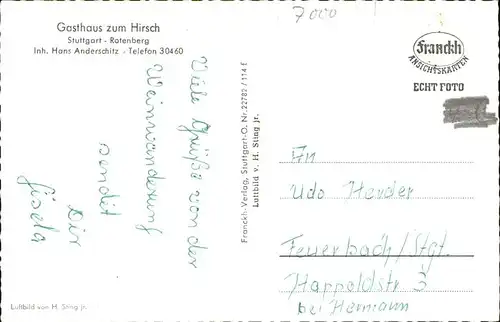 7000
Gasthaus zum Hirsch
Stuttgart - Rotenberg
Inh. Hans Anderschitz - Telefon 30460
Viele Grüße von der
Weinwanderung
sendet
Dir
Gisela
Franckh-Verlag, Stuttgart-O. Nr. 22782/114 E
Luftbild v. H. Sting jr.
Franckh
ANSICHTSKARTEN
ECHT FOTO
An
Udo Herder
Feuerbach/Stgt.
Happoldstr 3
bei Hermann
Luftbild von H. Sting jr.